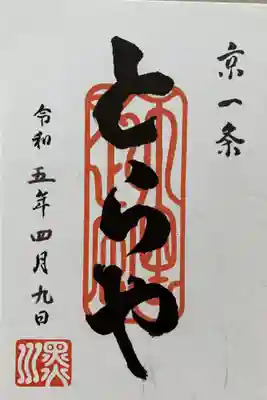 京一条
とらや
令和五年四月九日
黒川